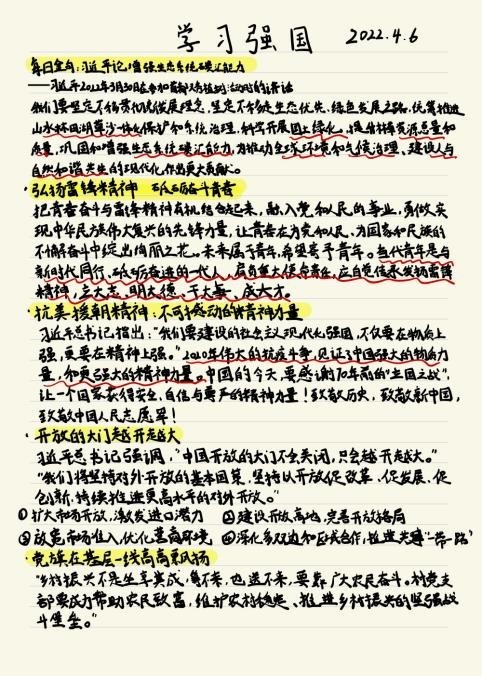 学习强国 2022.4.6
每日金句:习近平论增强生态系统碳汇能力
——习近平2022年3月30日在参加首都义务植树活动时的讲话
我们要坚定不移贯彻新发展理念,坚定不移走生态优先、绿色发展之路,统筹推进
山水林田湖草沙一体化保护和系统治理,科学开展国土绿化,提升林草资源总量和
质量,巩固和增强生态系统碳汇能力,为推动全球环境和气候治理、建设人与
自然和谐共生的现代化作出更大贡献。
·弘扬雷锋精神 砥砺奋斗青春
把青春奋斗与雷锋精神有机结合起来,融入党和人民的事业,勇做实
现中华民族伟大复兴的先锋力量,让青春在为党和人民、为国家和民族的
不懈奋斗中绽出绚丽之花。未来属于青年,希望寄予青年。当代青年是与
新时代同行、砥砺奋进的一代人,肩负重大使命责任,应自觉传承发扬雷锋
精神,立大志、明大德、干大事、成大才。
·抗美援朝精神:不可撼动的精神力量
习近平总书记指出:“我们要建设的社会主义现代化强国,不仅要在物质上
强,更要在精神上强。”2020年伟大的抗疫斗争,见证了中国强大的物质力
量,和更强大的精神力量。中国的今天,要感谢70年前的“立国之战”,
让一个国家获得安全、自信与尊严的精神力量!致敬历史,致敬新中国,
致敬中国人民志愿军!
·开放的大门越开越大
习近平总书记强调,“中国开放的大门不会关闭,只会越开越大。”
“我们将坚持对外开放的基本国策,坚持以开放促改革、促发展、促
创新,持续推进更高水平的对外开放。”
①扩大市场开放,激发进口潜力 ②建设开放高地,完善开放格局
③放宽市场准入,优化营商环境 ④深化多双边和区域合作,推进共建“一带一路”
·党旗在基层一线高高飘扬
“乡村振兴不是坐享其成,等不来,也送不来,要靠广大农民奋斗。村党支
部要成为帮助农民致富、维护农村稳定、推进乡村振兴的坚强战
斗堡垒。”